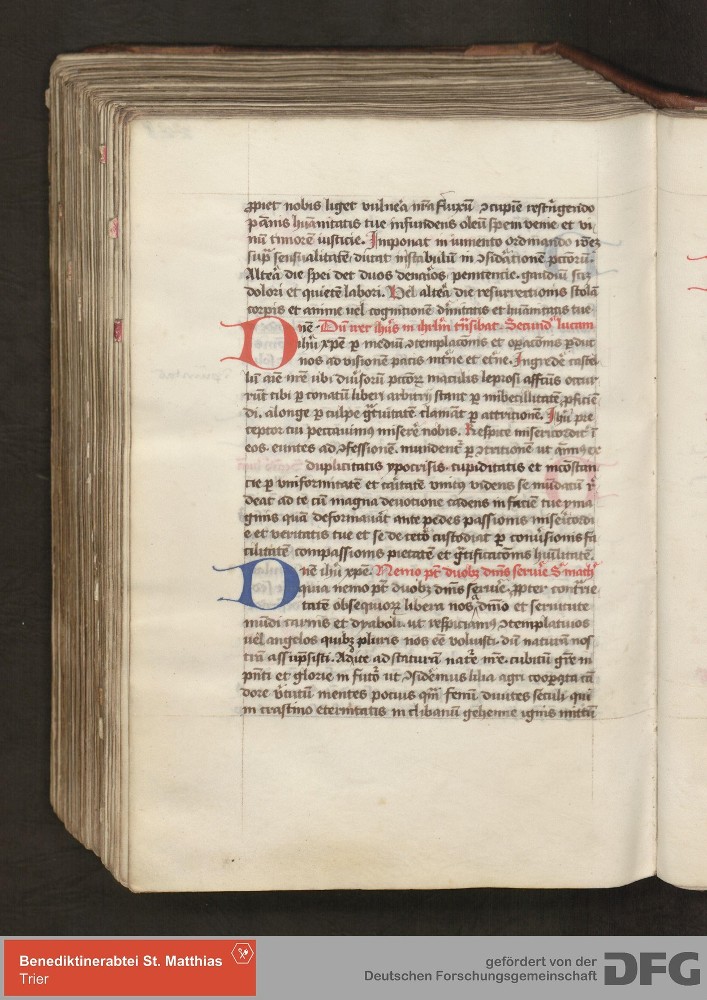 ꝓpiet nobis liget vulnera nr̄a fluxū ↄcupie restrīgendo
p amīs huāitatis tue infundens oleū spem venie et vi
nū timorē iusticie. Imponat in iumento ordinando
sup sensualitatē ducat in stabulū in ↄsid̾ationē pctōrū
Altera die spei det duos denarios penitentie. gaudiū
dolori et quietē labori. Vel altera die resurrectionis stolā
corpis et anime vel cognitionē diuitatis et huāitatis tue
Dne. Dū iret ihūs in ihrlm trāsibat. Secundū lucam
ihū xpē ꝑ mediū ↄtemplacōnis et opacōnis ꝑduc
nos ad visionē pacis int̾ne et et̾ne. Ingredē castel
lū aīe nr̄e ubi diuisorū pctōrū maculis leprosi affectus occur
rūt tibi ꝑ conatū liberi arbitrij stant ꝑ imbecillitatē ꝓficiē
di. alonge ꝑ culpe gͣuitatē clamāt ꝑ attritionē. Ihū pre
ceptor tui peccauimus miserē nobis. Respice misericordit̾ ī
eos. euntes ad ↄfessionē. mundent̾ ꝑ ↄtritionē ut
duplicitatis ypocrisis. cupiditatis et incōstan
cie ꝑ vniformitatē et caritatē vnius videns se mūdatū
deat ad te cū magna deuotione cadens in faciē tue yma
ginis quā deformauāt ante pedes passionis misericordi
e et veritatis tue et se de cetō custodiat ꝑ conuersionis fa
cilitatē compassionis pietatē et gͣtificacōnis huīlitatē.
Dne ihū xpe. Nemo pt̄ duobꝫ dn̄is seruīe S math
quia nemo pt̄ duobꝫ dn̄is seruīe ꝓpter contrarie
tatē obsequiorū libera nos a dmō et seruitute
mūdi carnis et dyaboli. ut respiciamus ↄtemplatiuos
vel angelos quibꝫ pluris nos eē voluisti. dū naturā nos
trā assūpsisti. Adiice ad staturā nat̾e nr̄e. cubitū gr̄e in
pn̄ti et glorie in futō ut ↄsid̾emus lilia agri coopta cā
dore v̾tutū mentes pocius qm̄ fenū diuites seculi qui
in crastino eternitatis in clibanū gehenne ignis mittūt̾
Benediktinerabtei St. Matthias
Trier
gefördert von der
Deutschen Forschungsgemeinschaft
DFG